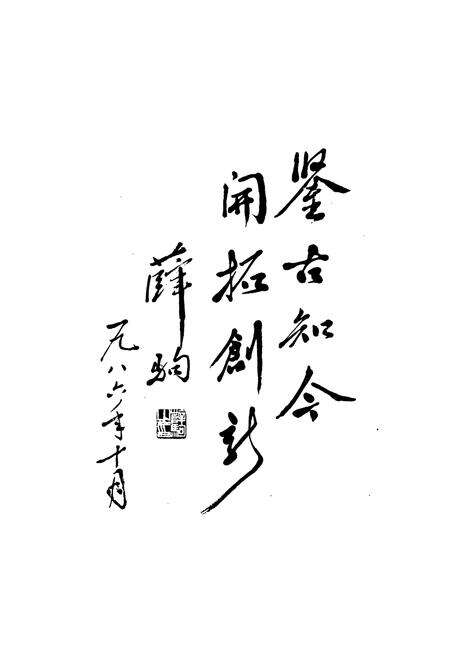 鉴古知今
開拓創新
薛駒
一九八六年十月